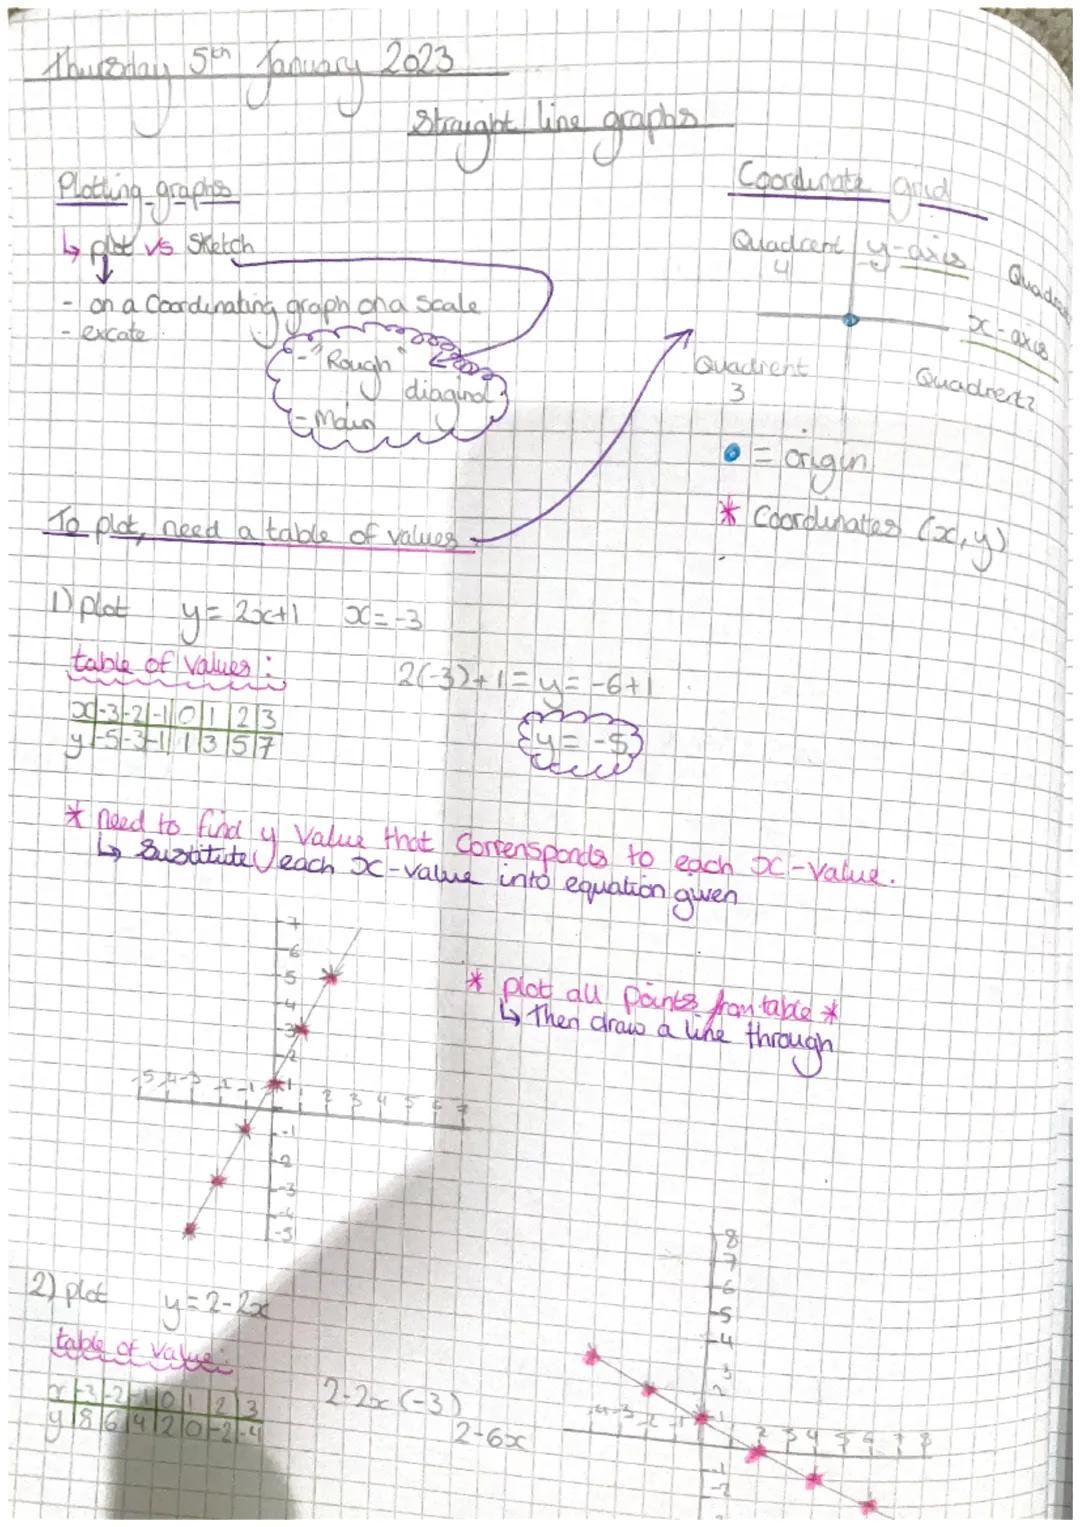 Thursday 5th January 2023
Straight line graphs
Plotting graphs
↳ plot vs Sketch
- on a Coordinating graph on a scale
- excate
- "Rough"
diaginol
- Main
Coordinate grid
Quadrent 4
y-axis
x-axis
Quadrent 3
Quadrent 2
= origin
* Coordinates (x,y)
To plot, need a table of values
1) plot y = 2x+1 x=-3
table of values:
2(-3)+1 = y = -6+1
x -3 -2 -1 0 1 2 3
y -5 -3 -1 1 3 5 7
y = -5
* need to find y value that Corrensponds to each x-value.
↳ Sustitute each x-value into equation given
7
6
5
4
3
2
1
-5 -4 -3 -2 -1 1 2 3 4 5 6 7
-1
-2
-3
-4
-5
* plot all points from table *
↳ Then draw a line through
2) plot y = 2-2x
table of value:
x -3 -2 -1 0 1 2 3
y 8 6 4 2 0 -2 -4
2-2x (-3)
2-6x
8
7
6
5
4
3
2
1
-4 -3 -2 -1 2 3 4 5 6 7 8
-1
-2